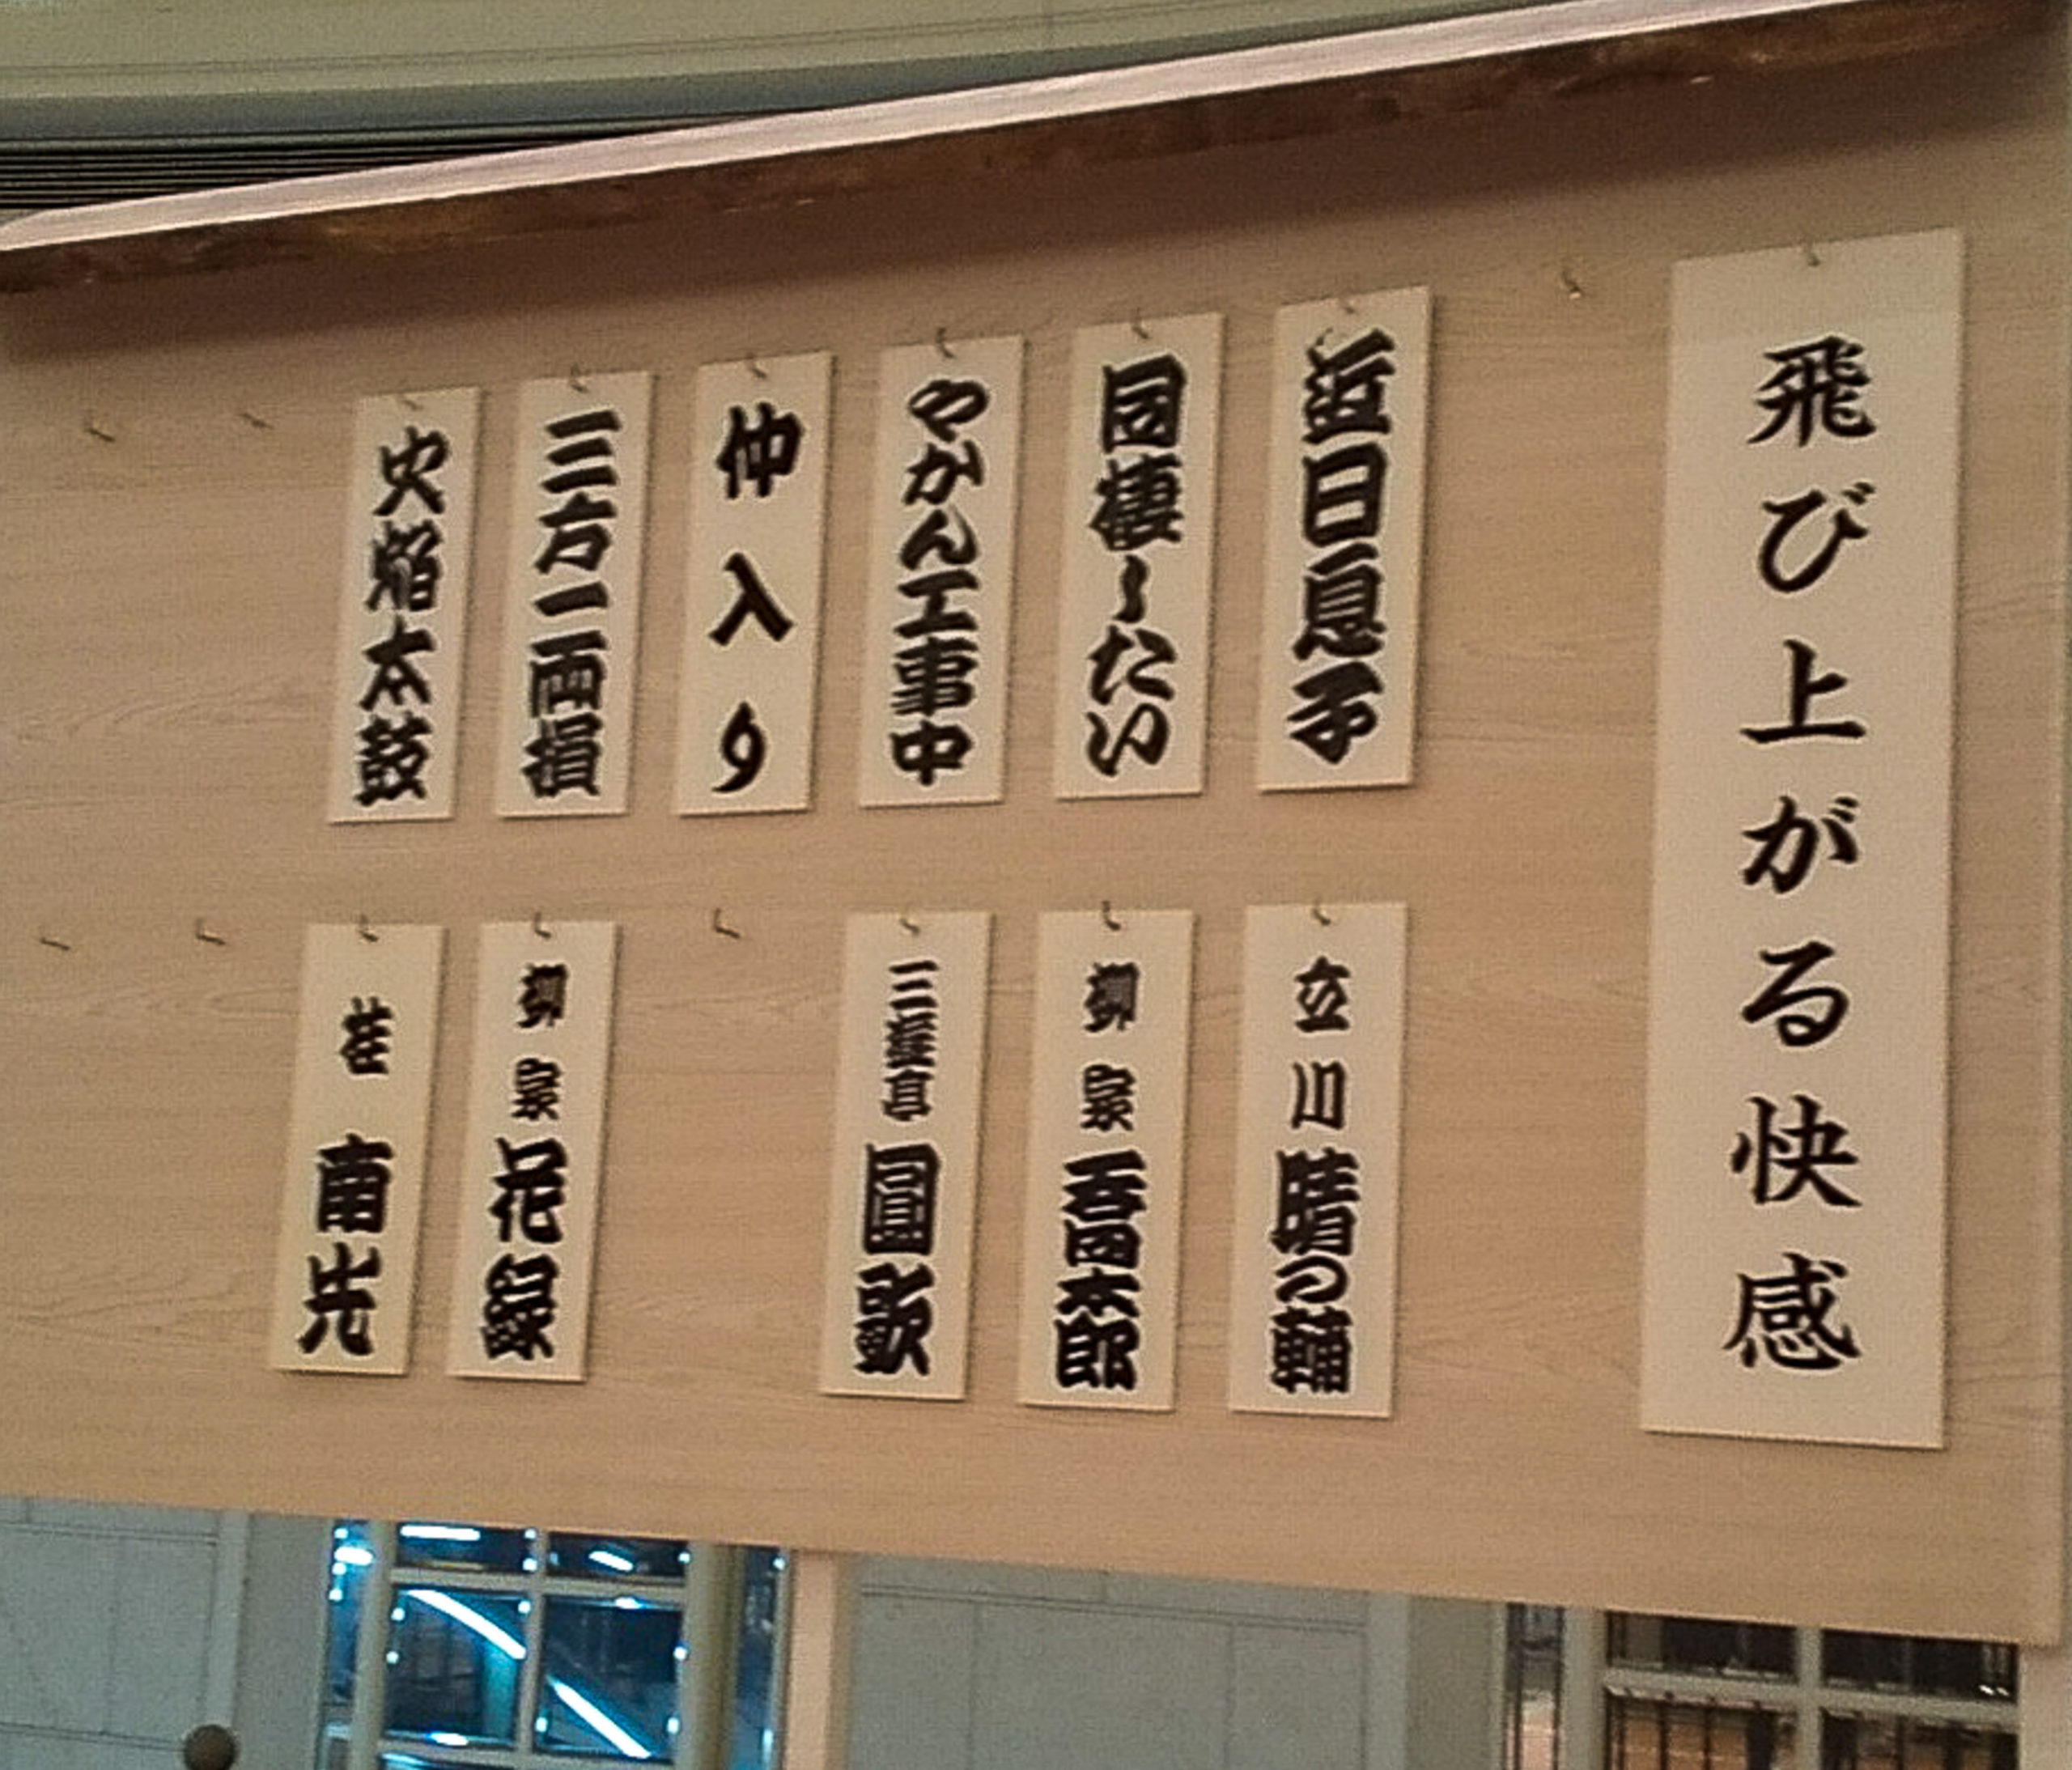 飛び上がる快感
近日息子
同棲したい
やかん工事中
仲入り
三方一両損
火焔太鼓
立川晴の輔
柳家吾田太郎
三遊亭圓歌
柳家花緑
桂南光